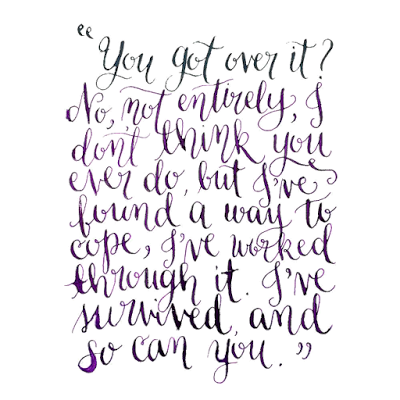 “You got over it?
No, not entirely, I
don't think you
ever do, but I've
found a way to
cope, I've worked
through it. I've
survived, and
so can you.”